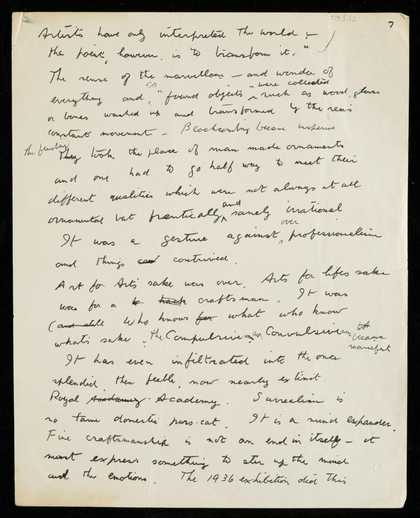 7
Artists have only interpreted the world –
the point, however, is to transform it."
The sense of the marvellous – and wonder of
everything and, "found objects" such as wood, glass
were collected
or bones washed up and transformed by the sea's
constant movement – Beachcombing became
the finding
They took the place of man made ornaments
and one had to go half way to meet their
different qualities which were not always at all
ornamental but frantically, and sanely irrational
It was a gesture against over professionalism
and things contrived.
Art for Art's sake was over. Arts for life's sake
was for a craftsman. It was
who knows for what who know
what's sake. the Compulsive or Convulsive
It has even infiltrated into the once
splendid, then feeble, now nearly extinct
Royal Academy Academy. Surrealism is
no tame domestic puss-cat. It is a mind expander.
Fine craftsmanship is not an end in itself – it
must express something to stir up the mind
and the emotions. The 1936 exhibition did this